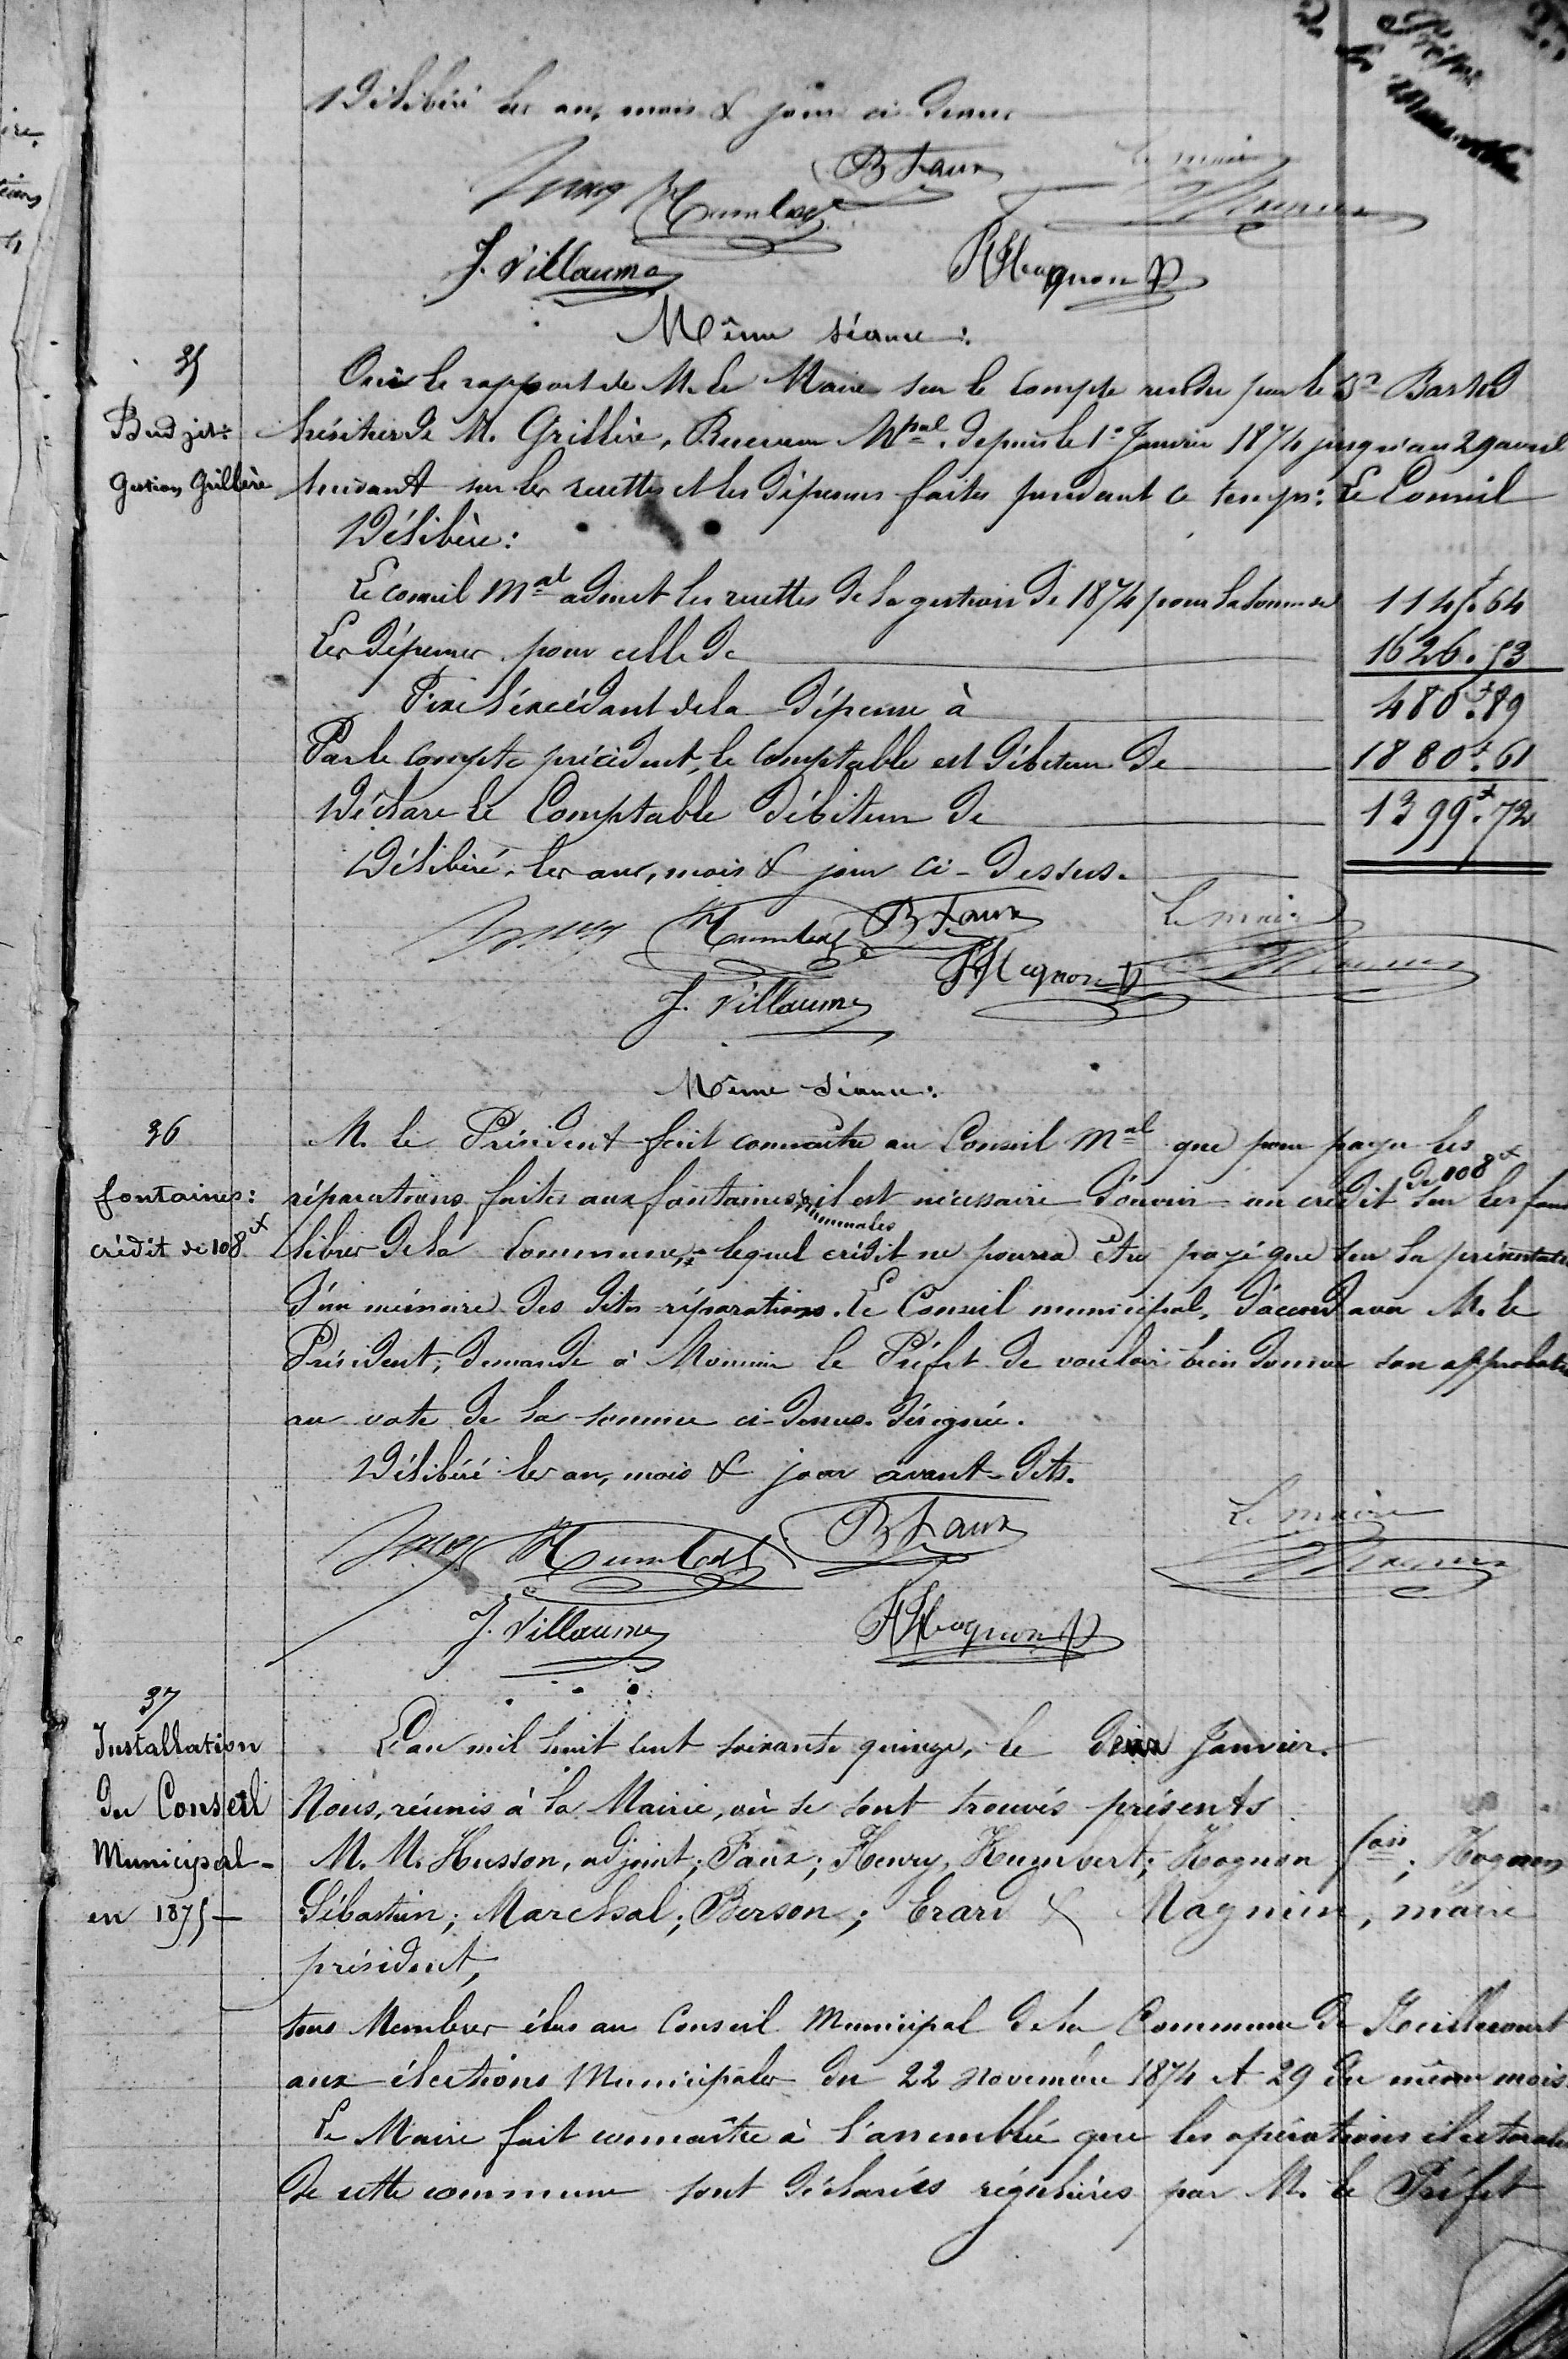 Délibéré les an, mois & jour ci-dessus
Le maire
B Faux
Humbert
J. Villaume
Hognon
Même séance:
35
Budget:
Gestion Grillère
Ouï le rapport de M. le Maire sur le compte rendu par le Sr
héritier de M. Grillère, Receveur Mpal. depuis le 1er Janvier 1874 jusqu'au 29 avril
sur les recettes et les dépenses faites pendant ce temps: Le Conseil
Délibère:
Le conseil Mal admet les recettes de la gestion de 1874 pour la somme de 1145f.64
Les dépenses pour celle de 1626.53
Fixe l'excédant de la dépense à 480f.89
Par le compte précédent, le comptable est débiteur de 1880f.61
Déclare le Comptable débiteur de 1399f.72
Délibéré, les an, mois & jour ci-dessus.
Le maire
Humbert
B Faux
Hognon
J. Villaume
Même séance:
36
fontaines:
crédit de 108f
M. le Président fait connaître au Conseil Mal que pour payer les
réparations faites aux fontaines communales il est nécessaire d'ouvrir un crédit de 108f sur les fon
libres de la Commune, lequel crédit ne pourra être payé que sur la présentati
d'un mémoire des dites réparations. Le Conseil municipal, d'accord avec M. le
Président, demande à Monsieur le Préfet de vouloir bien donner son approbati
au vote de la somme ci-dessus désignée.
Délibéré les an, mois & jour avant-dits.
Le maire
Humbert
B Faux
J. Villaume
Hognon
37
Installation
du Conseil
Municipal-
en 1875-
L'an mil huit cent soixante quinze, le deux Janvier.
Nous, réunis à la Mairie, où se sont trouvés présents
M. M. Husson, adjoint; Faux; Henry, Humbert; Hognon fois; Hognon
Sébastien; Marchal; Berson; Erard & Magnien, maire
président,
tous Membres élus au Conseil Municipal de la Commune de Huillecourt
aux élections Municipales du 22 novembre 1874 et 29 du même mois
Le Maire fait connaître à l'assemblée que les opérations électorales
de cette commune sont déclarées régulières par M. le Préfet